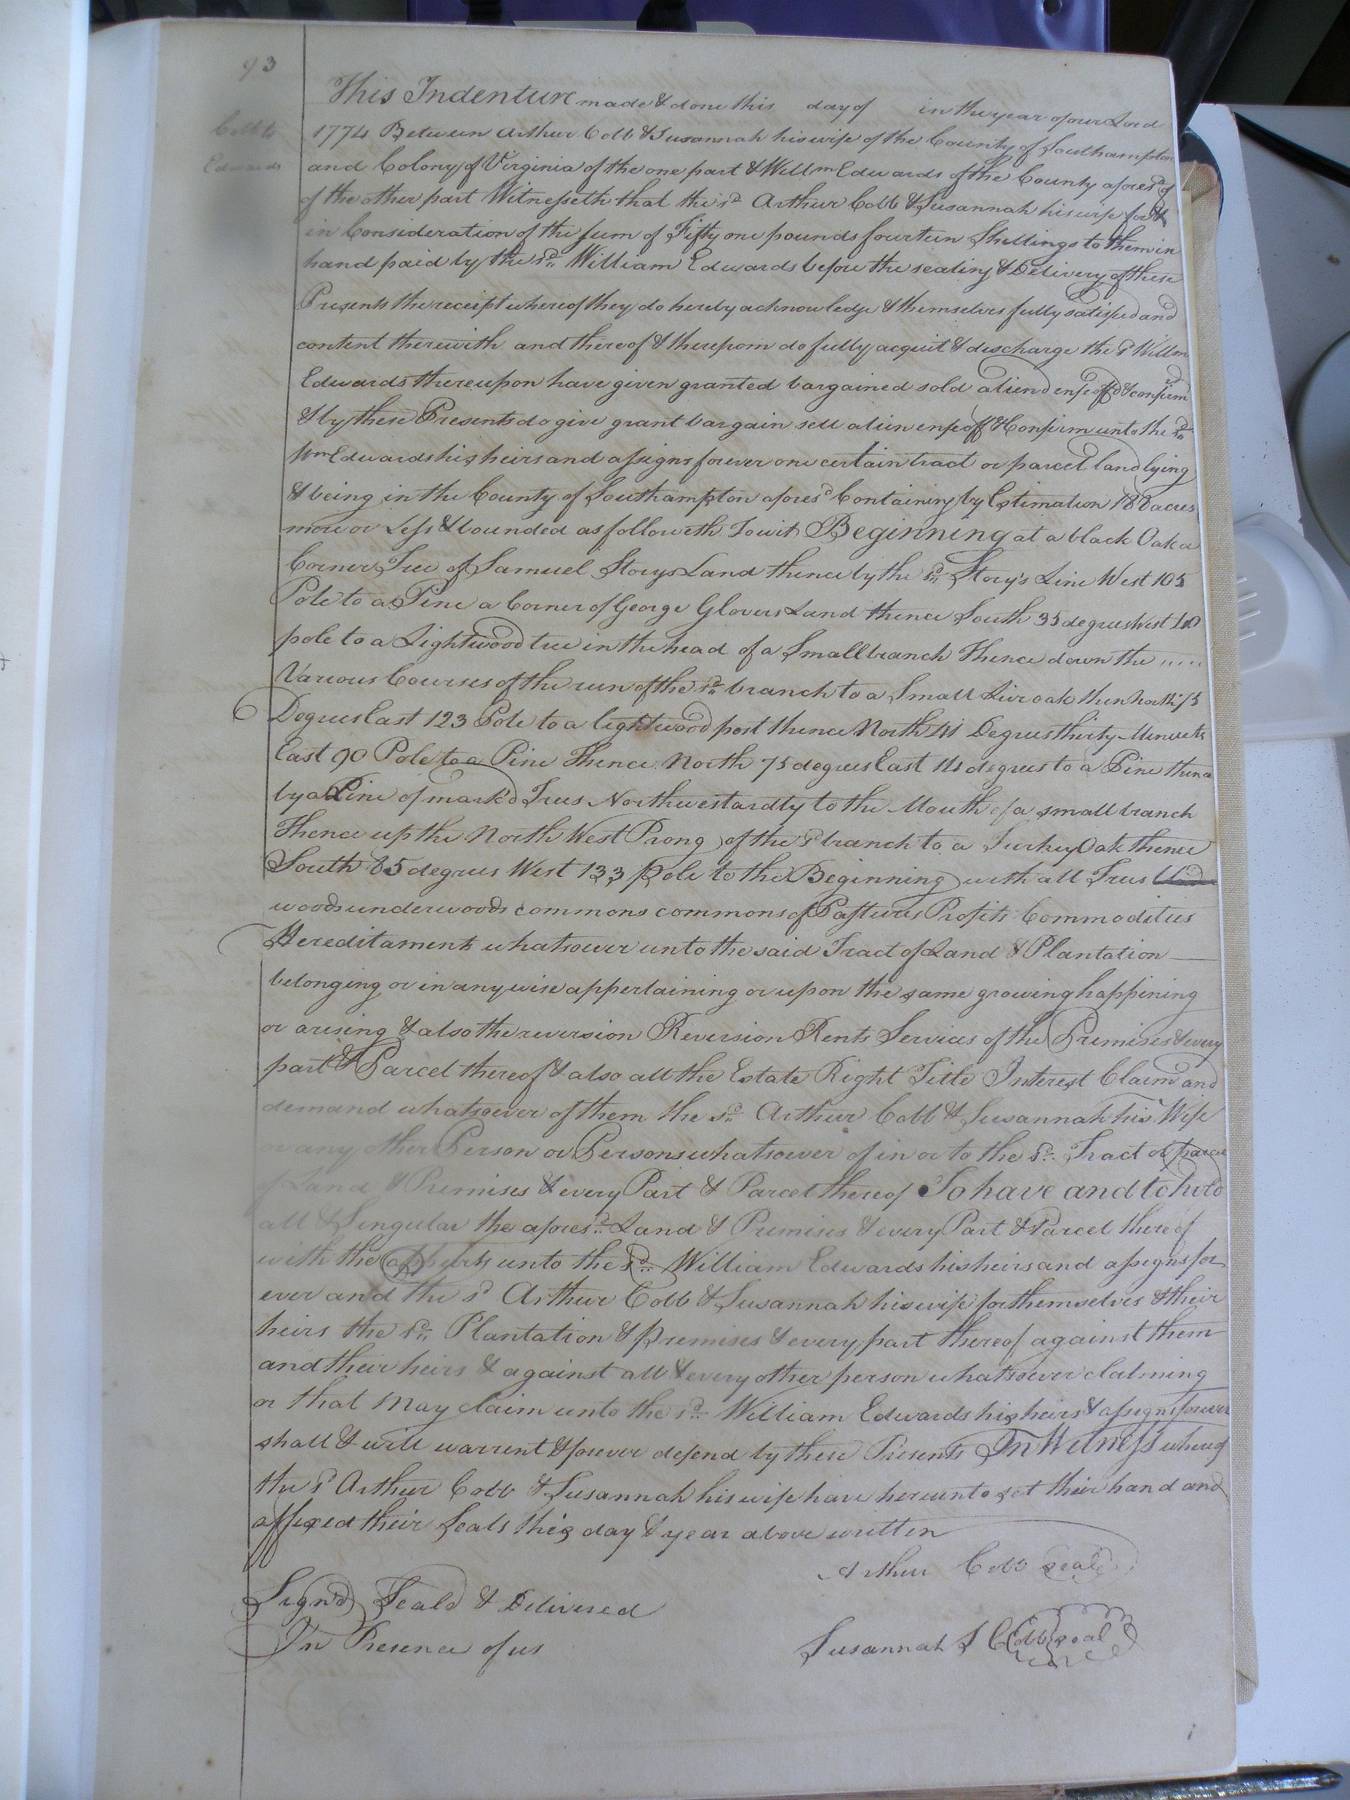 93
Cobb to
Edwards
This Indenture made & done this day of in the year of our Lord
1774 Between Arthur Cobb & Susannah his wife of the County of Southampton
and Colony of Virginia of the one part & Willm Edwards of the County afores.d of
of the other part Witnesseth that the sd Arthur Cobb & Susannah his wife for &
in Consideration of the sum of Fifty one pounds fourteen Shillings to them in
hand paid by the sd William Edwards before the sealing & Delivery of these
Presents the receipt whereof they do hereby acknowledge & themselves fully satisfied and
content therewith and thereof & therefrom do fully acquit & discharge the sd Willm
Edwards thereupon have given granted bargained sold aliend enfeoffd & confirm
& by these Presents do give grant bargain sell alien enfeoff & Confirm unto the sd
Wm Edwards his heirs and assigns forever one certain tract or parcel land lying
& being in the County of Southampton aforesd Containing by Estimation 188 acres
more or Less & bounded as followeth Towit Beginning at a black Oak a
Corner Tree of Samuel Storys Land thence by the sd Story's Line West 105
Pole to a Pine a Corner of George Glovers Land thence South 35 degrees West 40
pole to a Lightwood tree in the head of a Small branch Thence down the .....
Various Courses of the run of the sd branch to a Small Live oak then North 75
Degrees East 123 Pole to a lightwood post thence North 41 Degrees thirty Minuets
East 90 Pole to a Pine Thence North 75 degrees East 14 degrees to a Pine thence
by a Line of mark'd Trees Northwestardly to the Mouth of a small branch
Thence up the North West Prong of the sd branch to a Turkey Oak thence
South 85 degrees West 133 Pole to the Beginning with all Trees
woods underwoods commons commons of Pastures Profits Commodities
Hereditaments whatsoever unto the said Tract of Land & Plantation
belonging or in any wise appertaining or upon the same growing happining
or arising & also the reversion Reversion Rents Services of the Premises & every
part & Parcel thereof & also all the Estate Right Title Interest Claim and
demand whatsoever of them the sd Arthur Cobb & Susannah his Wife
or any other Person or Persons whatsoever of in or to the sd Tract or parcel
of Land & Premises & every Part & Parcel thereof To have and to hold
all & Singular the aforesd Land & Premises & every Part & Parcel thereof
with the appurts unto the sd William Edwards his heirs and assigns for
ever and the sd Arthur Cobb & Susannah his wife for themselves & their
heirs the sd Plantation & premises & every part thereof against them
and their heirs & against all & every other person whatsoever claiming
or that May claim unto the sd William Edwards his heirs & assigns forever
shall & will warrent & forever defend by these Presents In Witness whereof
the sd Arthur Cobb & Susannah his wife have hereunto set their hand and
affixed their Seals this day & year above written
Arthur Cobb seal
Sign'd Seald & Delivered
In Presence of us
Susannah S Cobb seal